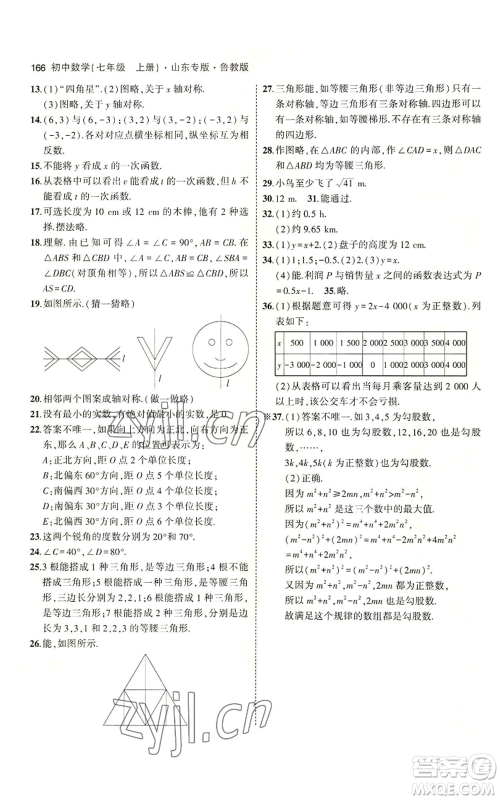 166 初中数学(七年级 上册)·山东专版·鲁教版
13.(1)“四角星”.(2)图略,关于 x 轴对称.
(3)图略,关于 y 轴对称.
14.(6,3)与(6,-3);(3,3)与(3,-3);(-3,2)与
(-3,-2).各对对应点横坐标相等,纵坐标互为相
反数.
15.不能将 y 看成 x 的一次函数.
16.从表格中可以看出 v 能看成 t 的一次函数,但不能
看成 t 的一次函数.
17.可选长度为 10 cm 或 12 cm 的木棒,他有 2 种选
择.摆法略.
18.理解.由已知可得 ∠A = ∠C = 90°,AB = CB.在
△ABS 和 △CBD 中,∠A = ∠C,AB = CB,∠ABS =
∠DBC(对顶角相等),所以 △ABS≌△CBD,所以
AS = CD.
19.如图所示.(猜一猜略)
l
l
l
20.相邻两个图案成轴对称.(做一做略)
21.没有最小的实数,有绝对值最小的实数,为 0.
22.答案不唯一,如以向上方向为正北,向右方向为正
东,那么A,B,C,D,E的位置可表示为
A:正北方向,距 O 点 4 个单位长度;
B:北偏东 60°方向,距 O 点 5 个单位长度;
C:南偏西 30°方向,距 O 点 4 个单位长度;
D:南偏东 30°方向,距 O 点 6 个单位长度;
E:北偏西 60°方向,距 O 点 2 个单位长度.
23.这两个锐角的度数分别为20°和70°.
24.∠C=40°,∠D=80°.
25.3 根能搭成 1 种三角形,是等边三角形;4 根不能
搭成三角形;5 根能搭成 1 种三角形,是等腰三角
形;6 根能搭成 1 种三角形,是等边三角形;7 根能
搭成 2 种三角形,都是等腰三角形.3根,6根搭成的
是等边三角形;5,7 根搭出的三角形,分别是对称
轴为 1,3,3,1 条的等腰三角形.
26.能.如图所示.
27.三角形能,如等腰三角形(非等边三角形)有且只有
一条对称轴,等边三角形有三条对称轴.四边形也能
有一条对称轴,如等腰梯形.不存在有且只有三条对称轴
的四边形.
28.作图略,在 △ABC 的内部作 ∠CAD = x°,此时
△ABD,△ACD 均为等腰三角形.
29.小鸟至少飞了 √41 m.
30.12 m. 31.能通过.
32.(1)约 0.5 h.
(2)约 9.65 km.
33.(1)y=x+2;(2)盘子的高度为 20 cm.
34.(1)1;1.5;-0.5.(2)2.(3)略.
(4)能.利润 P 与销售量 x 之间的函数表达式为
P=0.5x-1. 35.略.
36.(1)根据题意可得 y=2x-4 000(x 为正整数).列
表如下:
x 500 1 000 1 500 2 000 2 500 3 000 3 500 4 000
y -3 000 -2 000 -1 000 0 1 000 2 000 3 000 4 000
(2)由此可看出当每月乘客量达到 2 000 人或
以上时,该公交车才不会亏损.
※37.(1)答案不唯一,如3,4,5为勾股数,
所以 6,8,10 也为勾股数;
所以 9,12,15 也为勾股数,
……;
3k,4k,5k(k 为正整数)也是勾股数.
(2)正确.
因为 m²+n²≥2mn,m²+n²>m²-n²,
所以 m²+n² 是这三个数中的最大值.
因为(m²-n²)²+(2mn)²=m⁴+2m²n²+n⁴=
(m²+n²)²,
所以(m²-n²)²+(2mn)²=(m²+n²)².
因为 m,n 为正整数,
所以 m²+n²,m²-n²,2mn 也是正整数.
所以 m²+n²,m²-n²,2mn 是勾股数.
故满足这个规律的数组都是勾股数.
zyjl.cn
zyjl.cn
答案圈
MXQE.COM